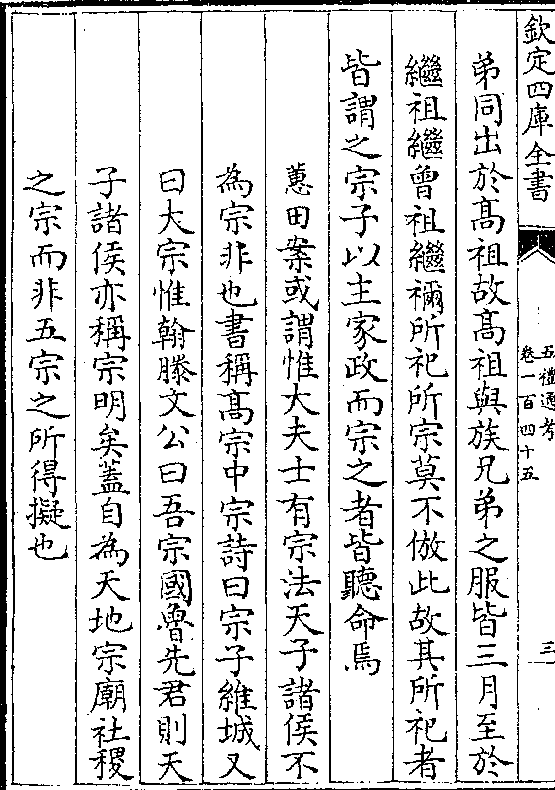 欽定四庫全書
五禮通考
卷一百四十五
三
弟同出於髙祖故髙祖與族兄弟之服皆三月至於
繼祖繼曾祖繼禰所祀所宗莫不倣此故其所祀者
皆謂之宗子以主家政而宗之者皆聽命焉
蕙田案或謂惟大夫士有宗法天子諸侯不
為宗非也書稱髙宗中宗詩曰宗子維城又
曰大宗惟翰滕文公曰吾宗國魯先君則天
子諸侯亦稱宗明矣蓋自為天地宗廟社稷
之宗而非五宗之所得擬也